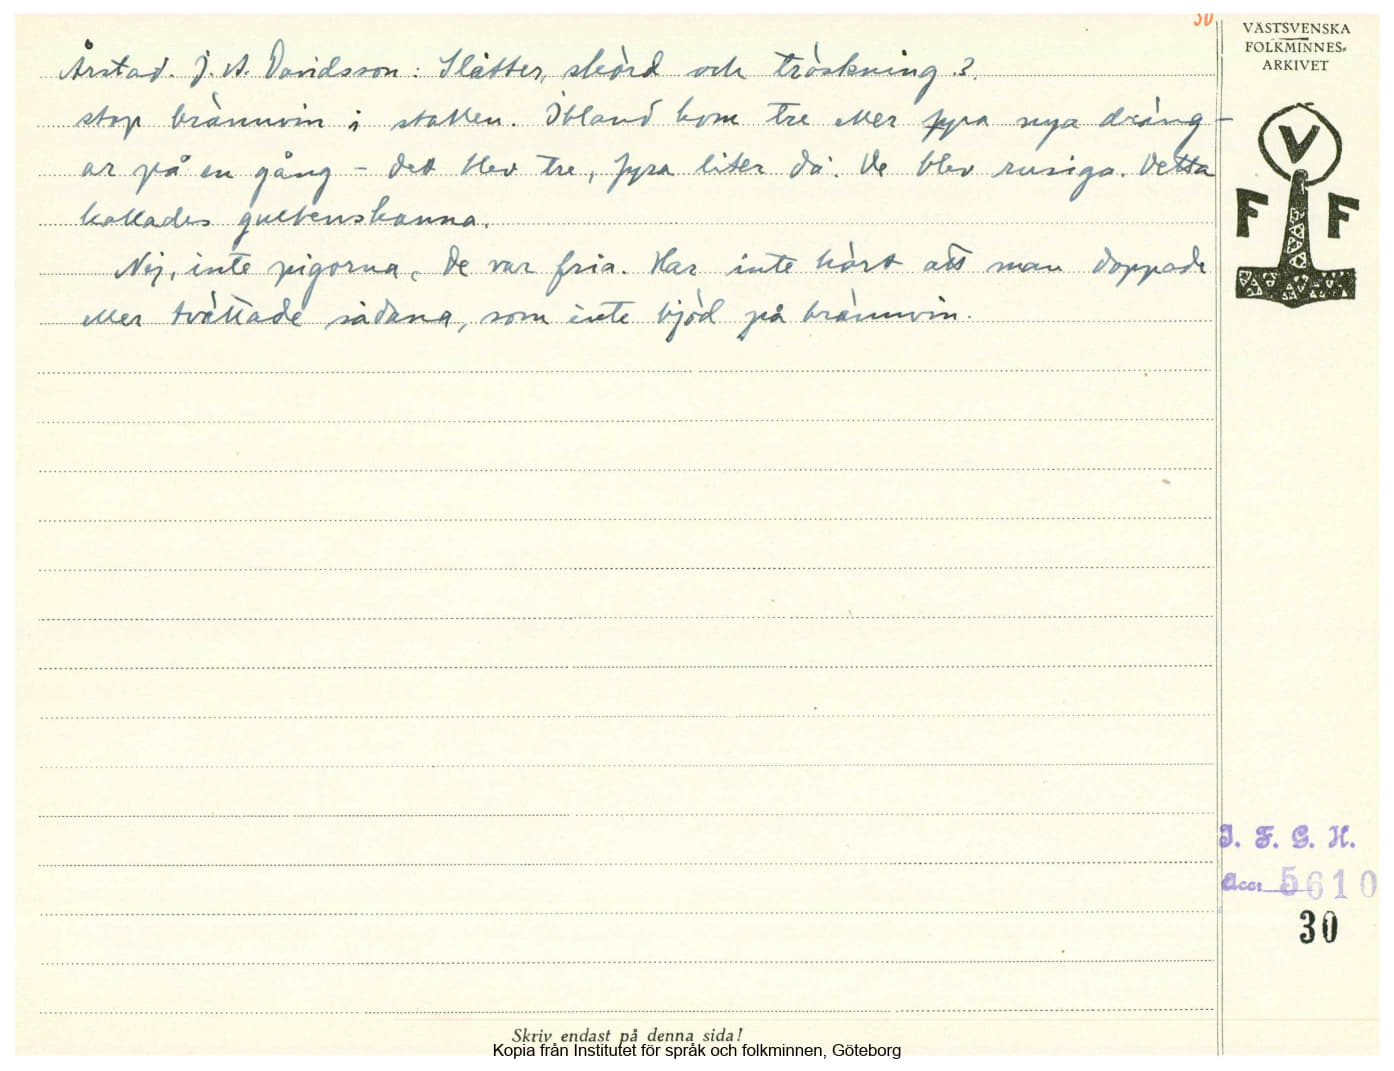 30
VÄSTSVENSKA
FOLKMINNES-
ARKIVET
Årstad. J. A. Davidsson: Slåtter, skörd och tröskning. 3.
stop brännvin i stallen. Ibland kom tre eller fyra nya dräng-
ar på en gång - det blev tre, fyra liter då. De blev rusiga. Detta
kallades
Nej, inte pigorna, de var fria. Har inte hört att man doppade
eller tvättade sådana, som inte bjöd på brännvin.
V
F F
I. F. G. H.
Acc. 5610
30
Skriv endast på denna sida!
Kopia från Institutet för språk och folkminnen, Göteborg